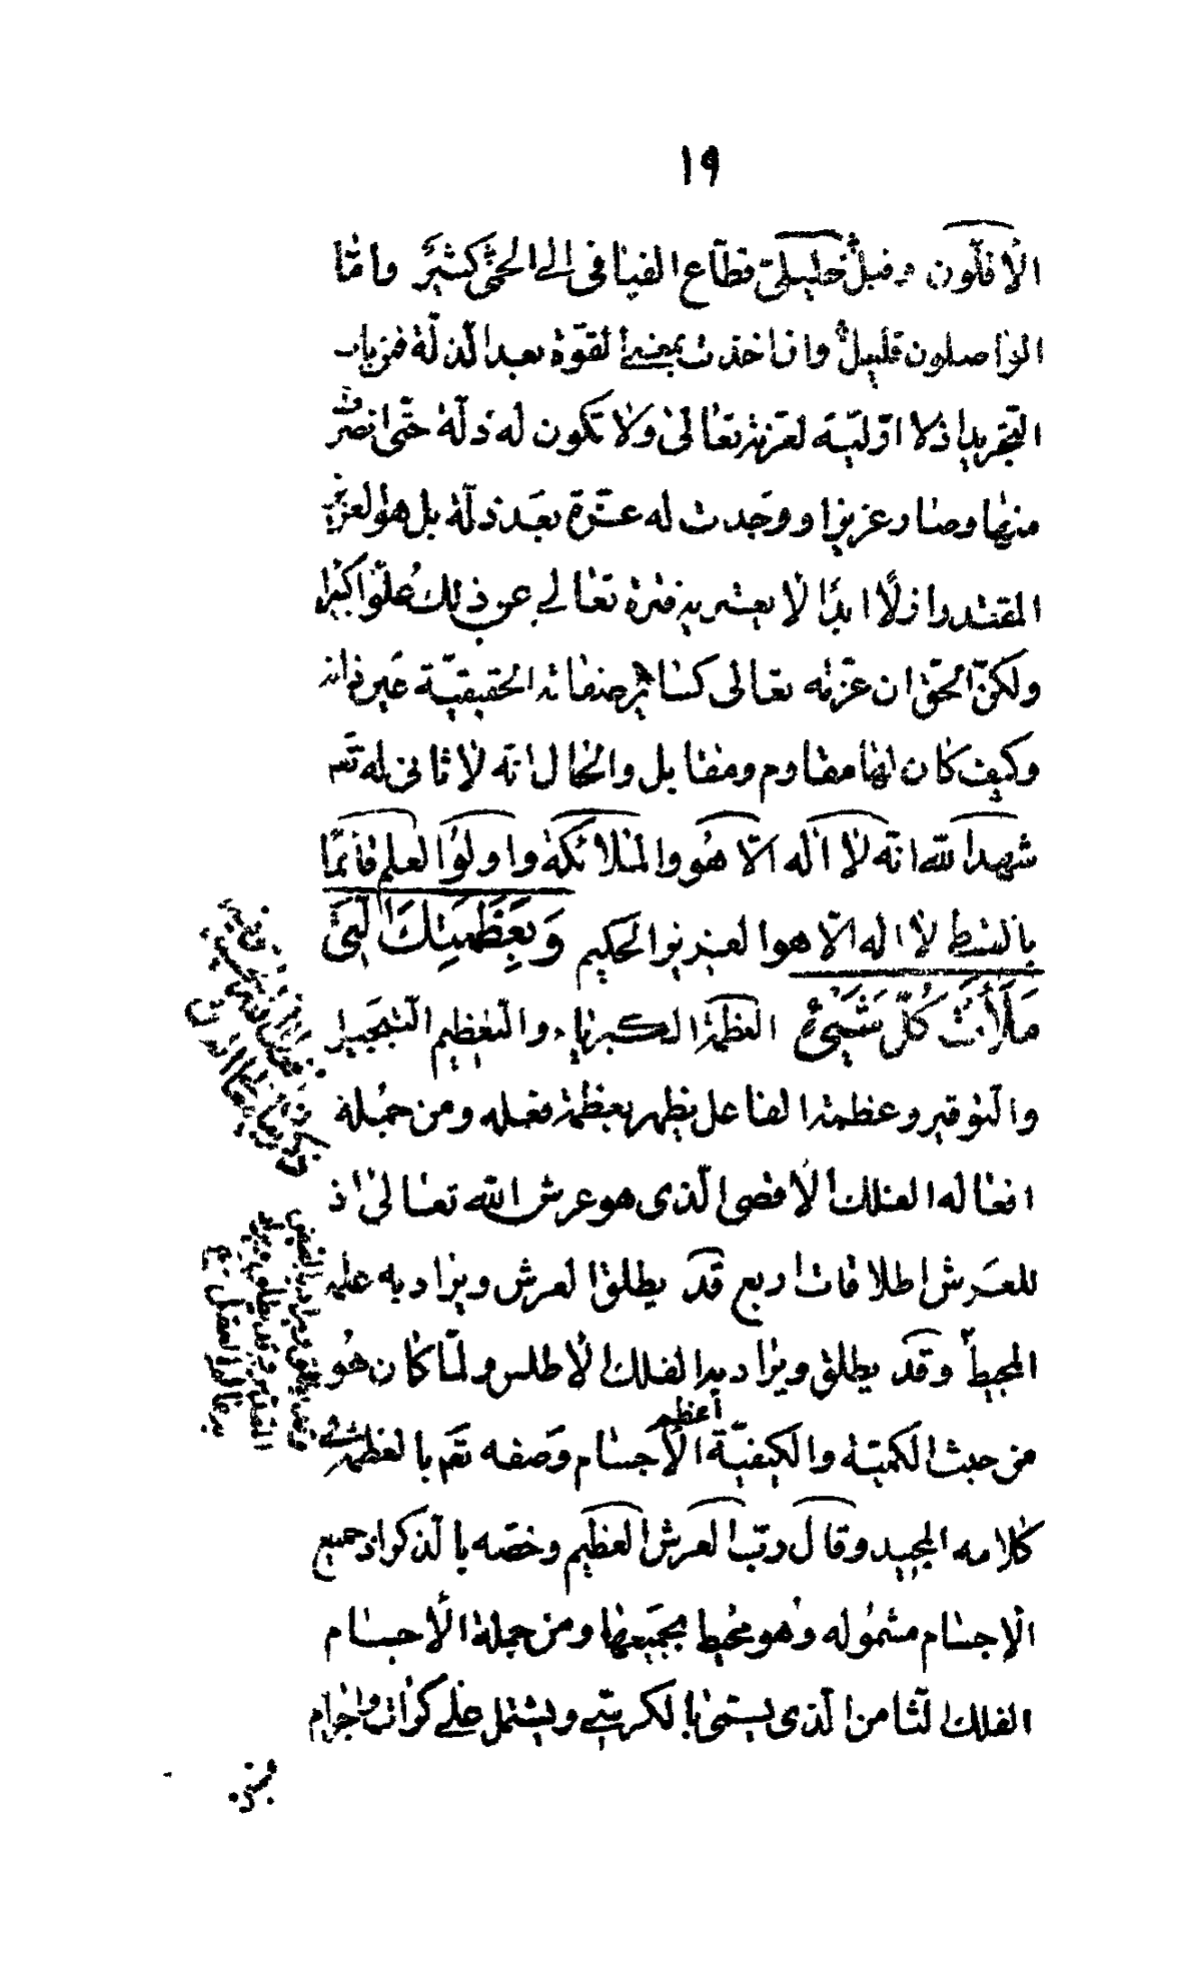 ١٩
الأفلون وقيل خليلي قطاع الفيافي الى الحمى كثير واما
الواصلون قليل وان اخذت بمعنى القوة بعد الذلة فمن باب
التجريد اذ لا اولية لعزته تعالى ولا تكون له ذلة حتى انصرف
منها وصار عزيزا ووجدت له عزة بعد ذلة بل هو العزيز
المقتدر ازلا ابدا لا يعتريه فترة تعالى عن ذلك علوا كبيرا
ولكن الحق ان عزته تعالى كسائر صفاته الحقيقية عين ذاته
وكيف كان لها مقاوم ومقابل والحال انه لا ثاني له
شهد الله انه لا اله الا هو والملائكة واولوا العلم قائما
بالقسط لا اله الا هو العزيز الحكيم وَبِعَظَمَتِكَ الَّتي
مَلَأَتْ كُلَّ شَيْءٍ العظمة الكبرياء والتعظيم التبجيل
والتوقير وعظمة الفاعل يظهر بعظمة فعله ومن جملة
افعاله الفلك الأقصى الّذي هو عرش الله تعالى اذ
للعرش اطلاقات اربع قد يطلق العرش ويراد به علمه
المحيط وقد يطلق ويراد به الفلك الأطلس ولمّا كان هو
من حيث الكمّيّة والكيفيّة أعظم الأجسام وصفه تعم بالعظمة في
كلامه المجيد وقال ربّ العرش العظيم وخصّه بالذكر اذ جميع
الاجسام مشموله وهو محيط بجميعها ومن جملة الأجسام
الفلك الثامن الّذي يسمّى بالكرسي ويشتمل على كرات واجرام